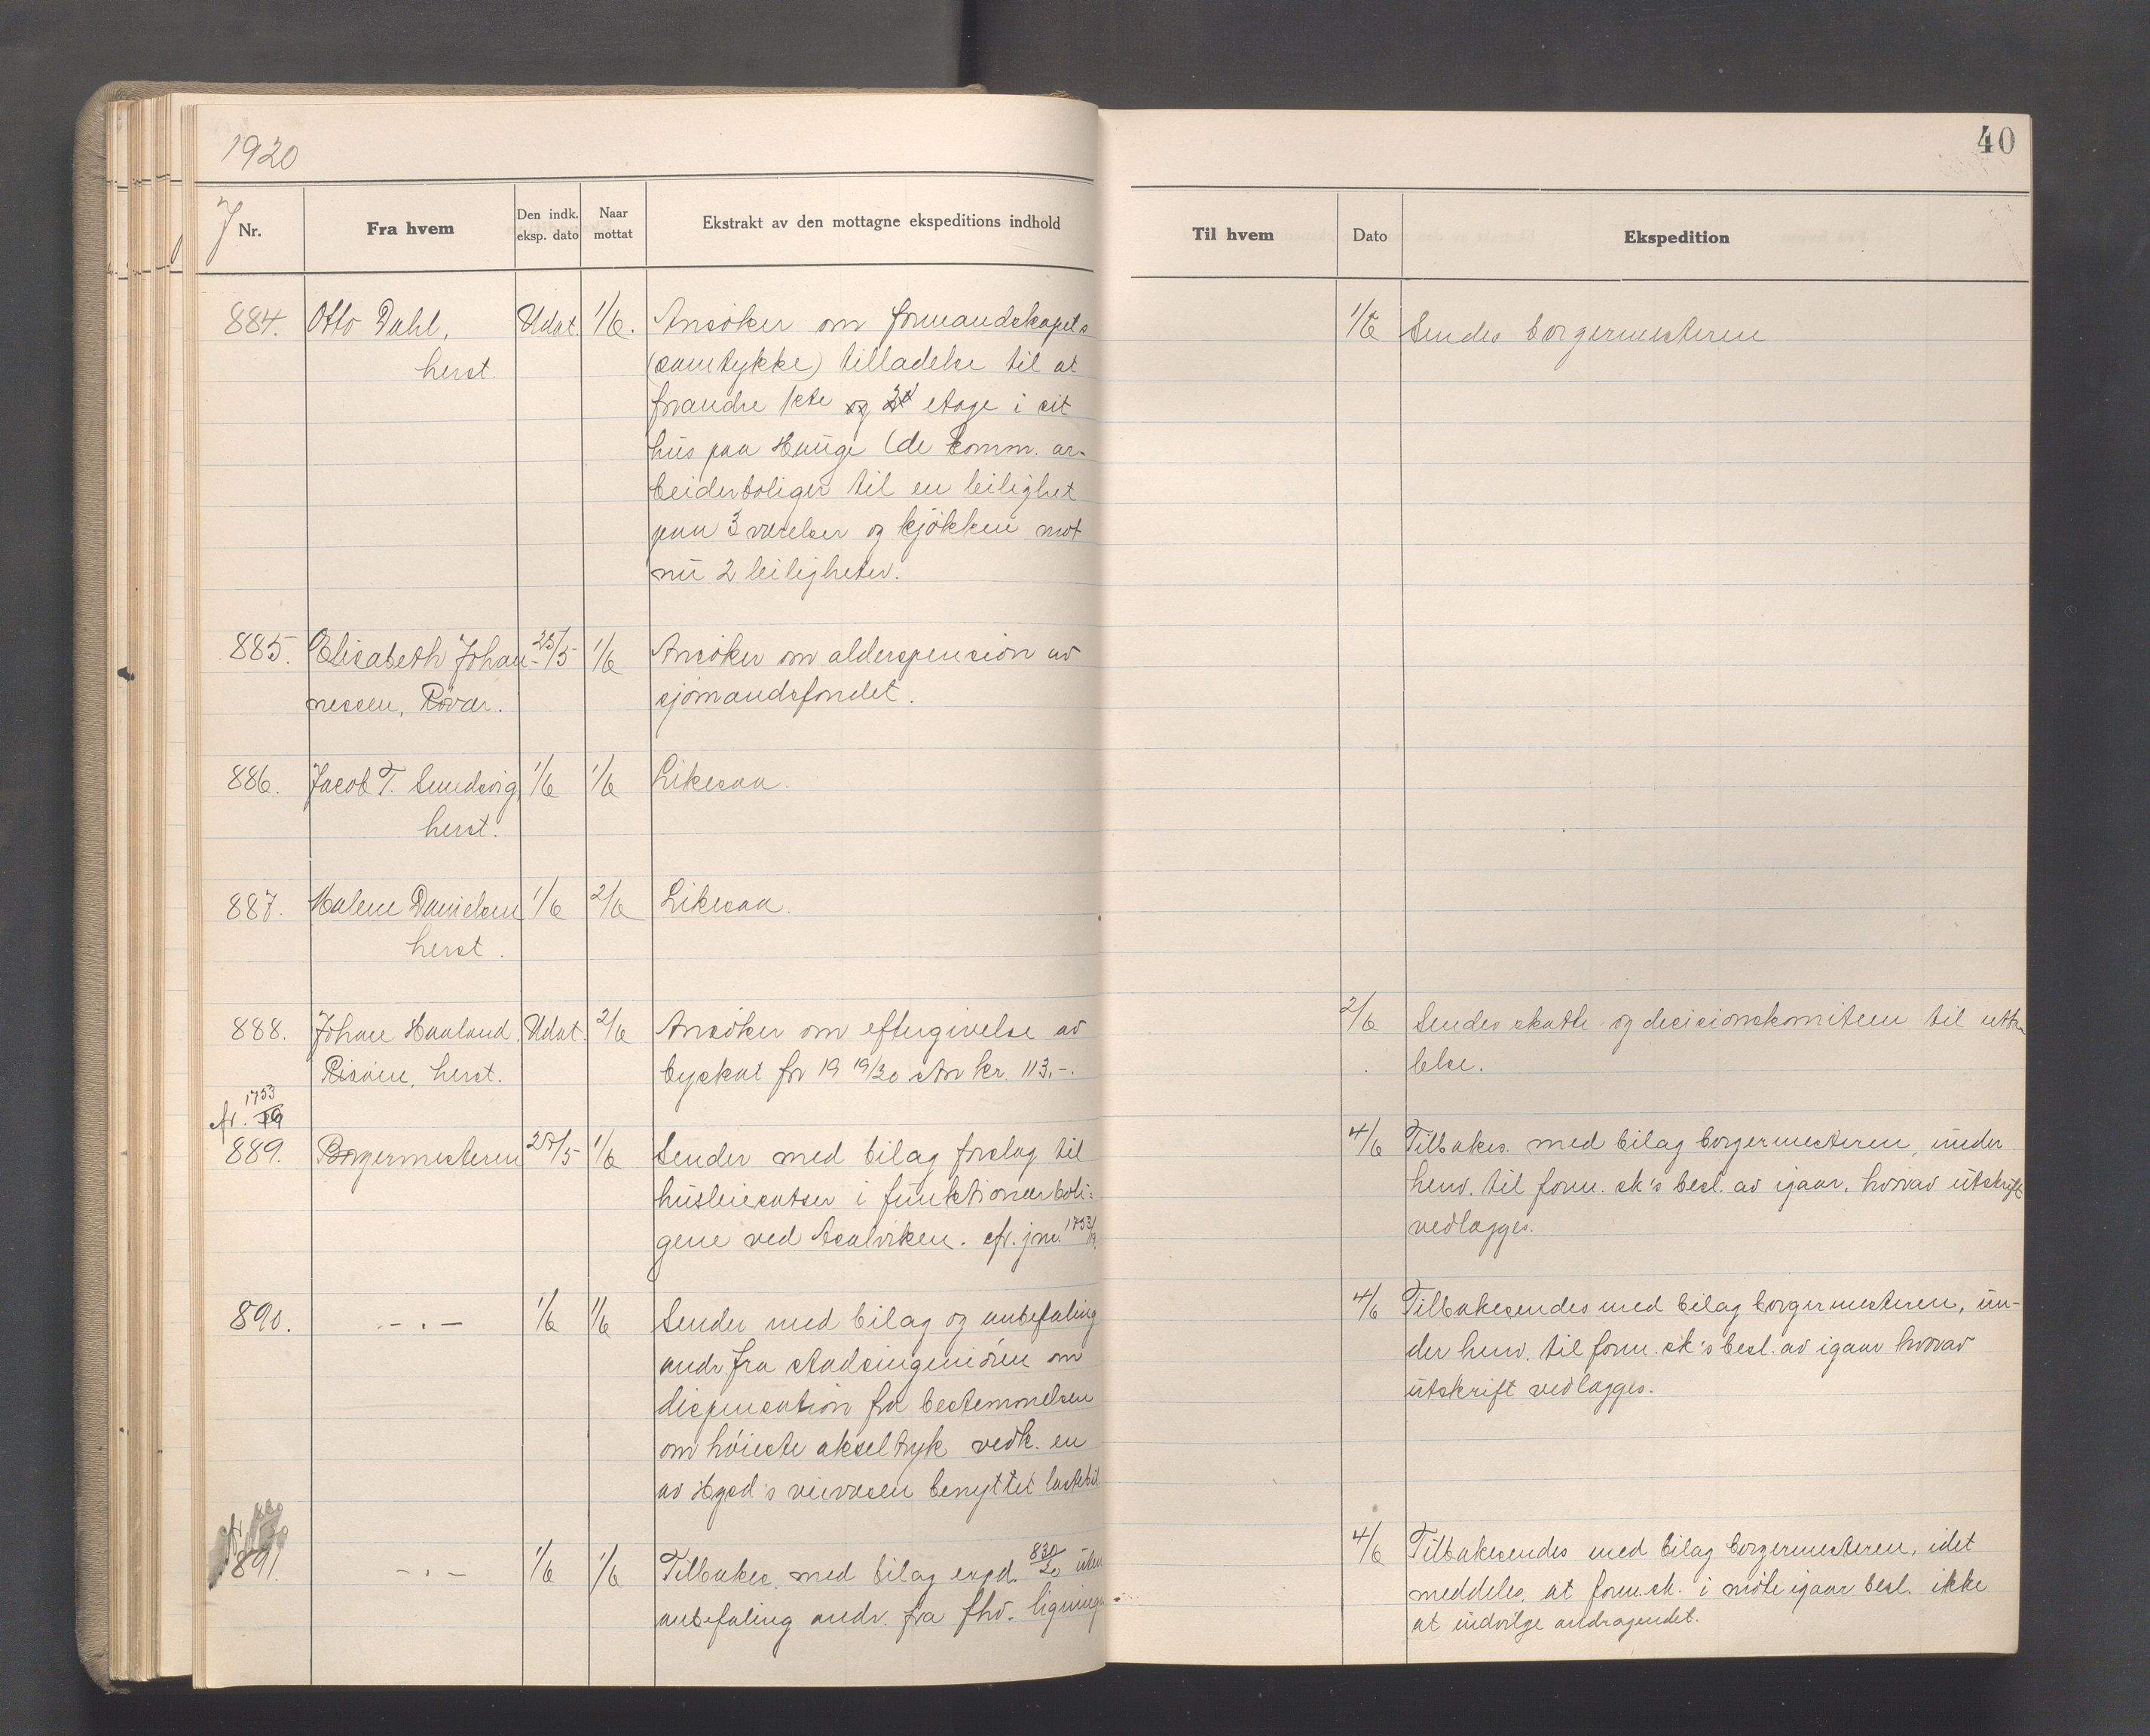 1920
40
J
Nr.
Fra hvem
Den indk. eksp. dato
Naar mottat
Ekstrakt av den mottagne ekspeditions indhold
Til hvem
Dato
Ekspedition
884. Otto Dahl, Udat. 1/6. Ansöker om formandskapets 1/6 Sendes borgermesteren
herst. (samtykke) tilladelse til at
forandre 1ste og 2d etage i sit
hus paa Hauge (de komm. ar-
beiderboliger til en leilighet
paa 3 værelser og kjökken mot
nu 2 leiligheter.
885. Elisabeth Johan- 25/5 1/6 Ansöker om alderspension av
nessen, Rövær. sjömandsfondet.
886. Jacob T. Sundsvig, 1/6 1/6 Likesaa.
herst.
887. Malene Danielsen 1/6 2/6 Likesaa.
herst.
888. Johan Haaland, Udat. 2/6 Ansöker om eftergivelse av 2/6 Sendes skatte- og decisionskomiteen til utta-
Risöen, herst. byskat for 19 19/20 stor kr. 113.-. lelse.
cfr. 1753/19
889. Borgermesteren 25/5 1/6 Sender med bilag forslag til 4/6 Tilbakes. med bilag borgermesteren, under
husleiesatser i funktionærboli= henv. til form.sk's besl. av igaar, hvorav utskrift
gene ved Skalviken. cfr. jnr. 1753/19. vedlægges.
890. -„- 1/6 1/6 Sender med bilag og anbefaling 4/6 Tilbakesendes med bilag borgermesteren, un-
andr. fra stadsingeniören om der henv. til form.sk's besl. av igaar hvorav
dispensation fra bestemmelsen utskrift vedlægges.
om höieste akseltryk vedk. en
av Hgsd's veivæsen benyttet lastebil
cfr.
891. -„- 1/6 1/6 Tilbakes. med bilag exped. 830/20 uten 4/6 Tilbakesendes med bilag borgermesteren, idet
anbefaling andr. fra fhv. lignings- meddeles, at form.sk. i möte igaar besl. ikke
at indvilge andragendet.